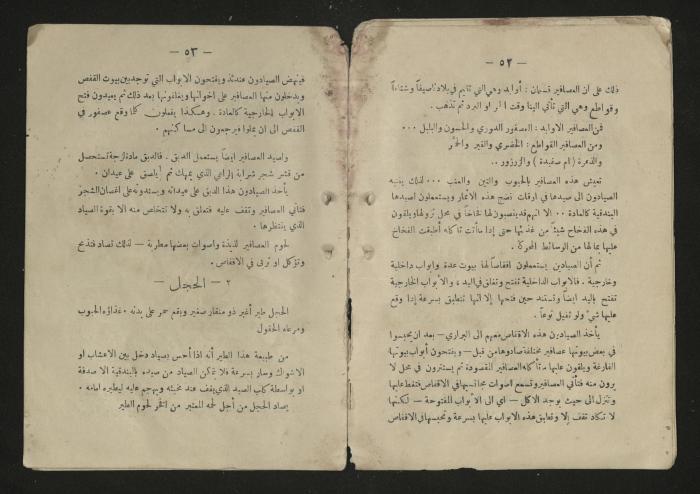 — ٥٢ —
ذلك على ان العصافير قسمان : أوابد وهي التي تقيم في بلادنا صيفاً وشتاءاً
وقواطع وهي التي تأتي الينا وقت الحر او البرد ثم تذهب .
فمن العصافير الاوابد : العصفور الدوري والحسون والبلبل ...
ومن العصافير القواطع : الخضري والقبر والحمر
والدعرة (ام صفيدة ) والزرزور ..
تعيش هذه العصافير بالحبوب والتين والعنب ... لذلك ينتبه
الصيادون الى صيدها في اوقات نضج هذه الأثمار ويستعملون لصيدها
البندقية كالعادة .. الا انهم قد ينصبون لها فخاخاً في محل نزولها ويلقون
في هذه الفخاخ شيئاً من غذائها حتى إذا ما أتت تأكله أطبقت الفخاخ
عليها بما لها من الوسائط المحركة .
ثم أن الصيادين يستعملون اقفاصاً لها بيوت عدة وابواب داخلية
وخارجية . فالابواب الداخلية تفتح وتغلق في اليد ، والأبواب الخارجية
تفتح باليد ايضاً وتستند حين فتحها إلا انها تنطبق بسرعة إذا وقع
عليها شيء ولو ثقيل نوعاً .
يأخذ الصيادون هذه الاقفاص معهم الى البراري — بعد ان يحبسوا
في بعض بيوتها عصافير مختلفة صادوها من قبل — ويفتحون أبواب بيوتها
الفارغة ويلقون عليها ما تأكله العصافير المقصودة ثم يستترون في محل لا
يرون منه فتأتي العصافير وتسمع اصوات مجانسيها في الاقفاص فتقف عليها
وتنزل الى حيث يوجد الأكل — اي الى الأبواب المفتوحة — لكنها
لا تكاد تقف إلا وتنطبق هذه الابواب عليها بسرعة وتحبسها في الاقفاص
— ٥٣ —
فينهض الصيادون عندئذ ويفتحون الابواب التي توجد بين بيوت القفص
ويدخلون منها العصافير على اخواتها ويغلقونها بعد ذلك ثم يعيدون فتح
الابواب الخارجية كالعادة . وهكذا يفعلون كلما وقع عصفور في
القفص الى ان يملوا فيرجعون الى مساكنهم .
ولصيد العصافير ايضاً يستعمل الدبق . فالدبق مادة لزجة تستحصل
من قشر شجر شرابة الراعي الذي يهلك ثم يلصق على عيدان .
يأخذ الصيادون هذا الدبق على عيدانه ويسندونه على اغصان الشجر
فتأتي العصافير وتقف عليه فتعلق به ولا تتخلص منه الا بقوة الصياد
الذي ينتظرها .
لحوم العصافير لذيذة واصوات بعضها مطربة — لذلك تصاد فتذبح
وتؤكل او تربى في الاقفاص .
٢ — الحجل —
الحجل طير أغبر ذو منقار صغير وبقع سمر على بدنه . غذاؤه الحبوب
ومرعاه الحقول
من طبيعة هذا الطير أنه اذا أحس بصياد دخل بين الاعشاب او
الاشواك وسار بسرعة فلا يتمكن الصياد من صيده بالبندقية الا صدفة
او بواسطة كلب الصيد الذي يقف عند مخبئه ويهجم عليه ليطيره امامه .
يصاد الحجل من أجل لحمه المعتبر من افخر لحوم الطير